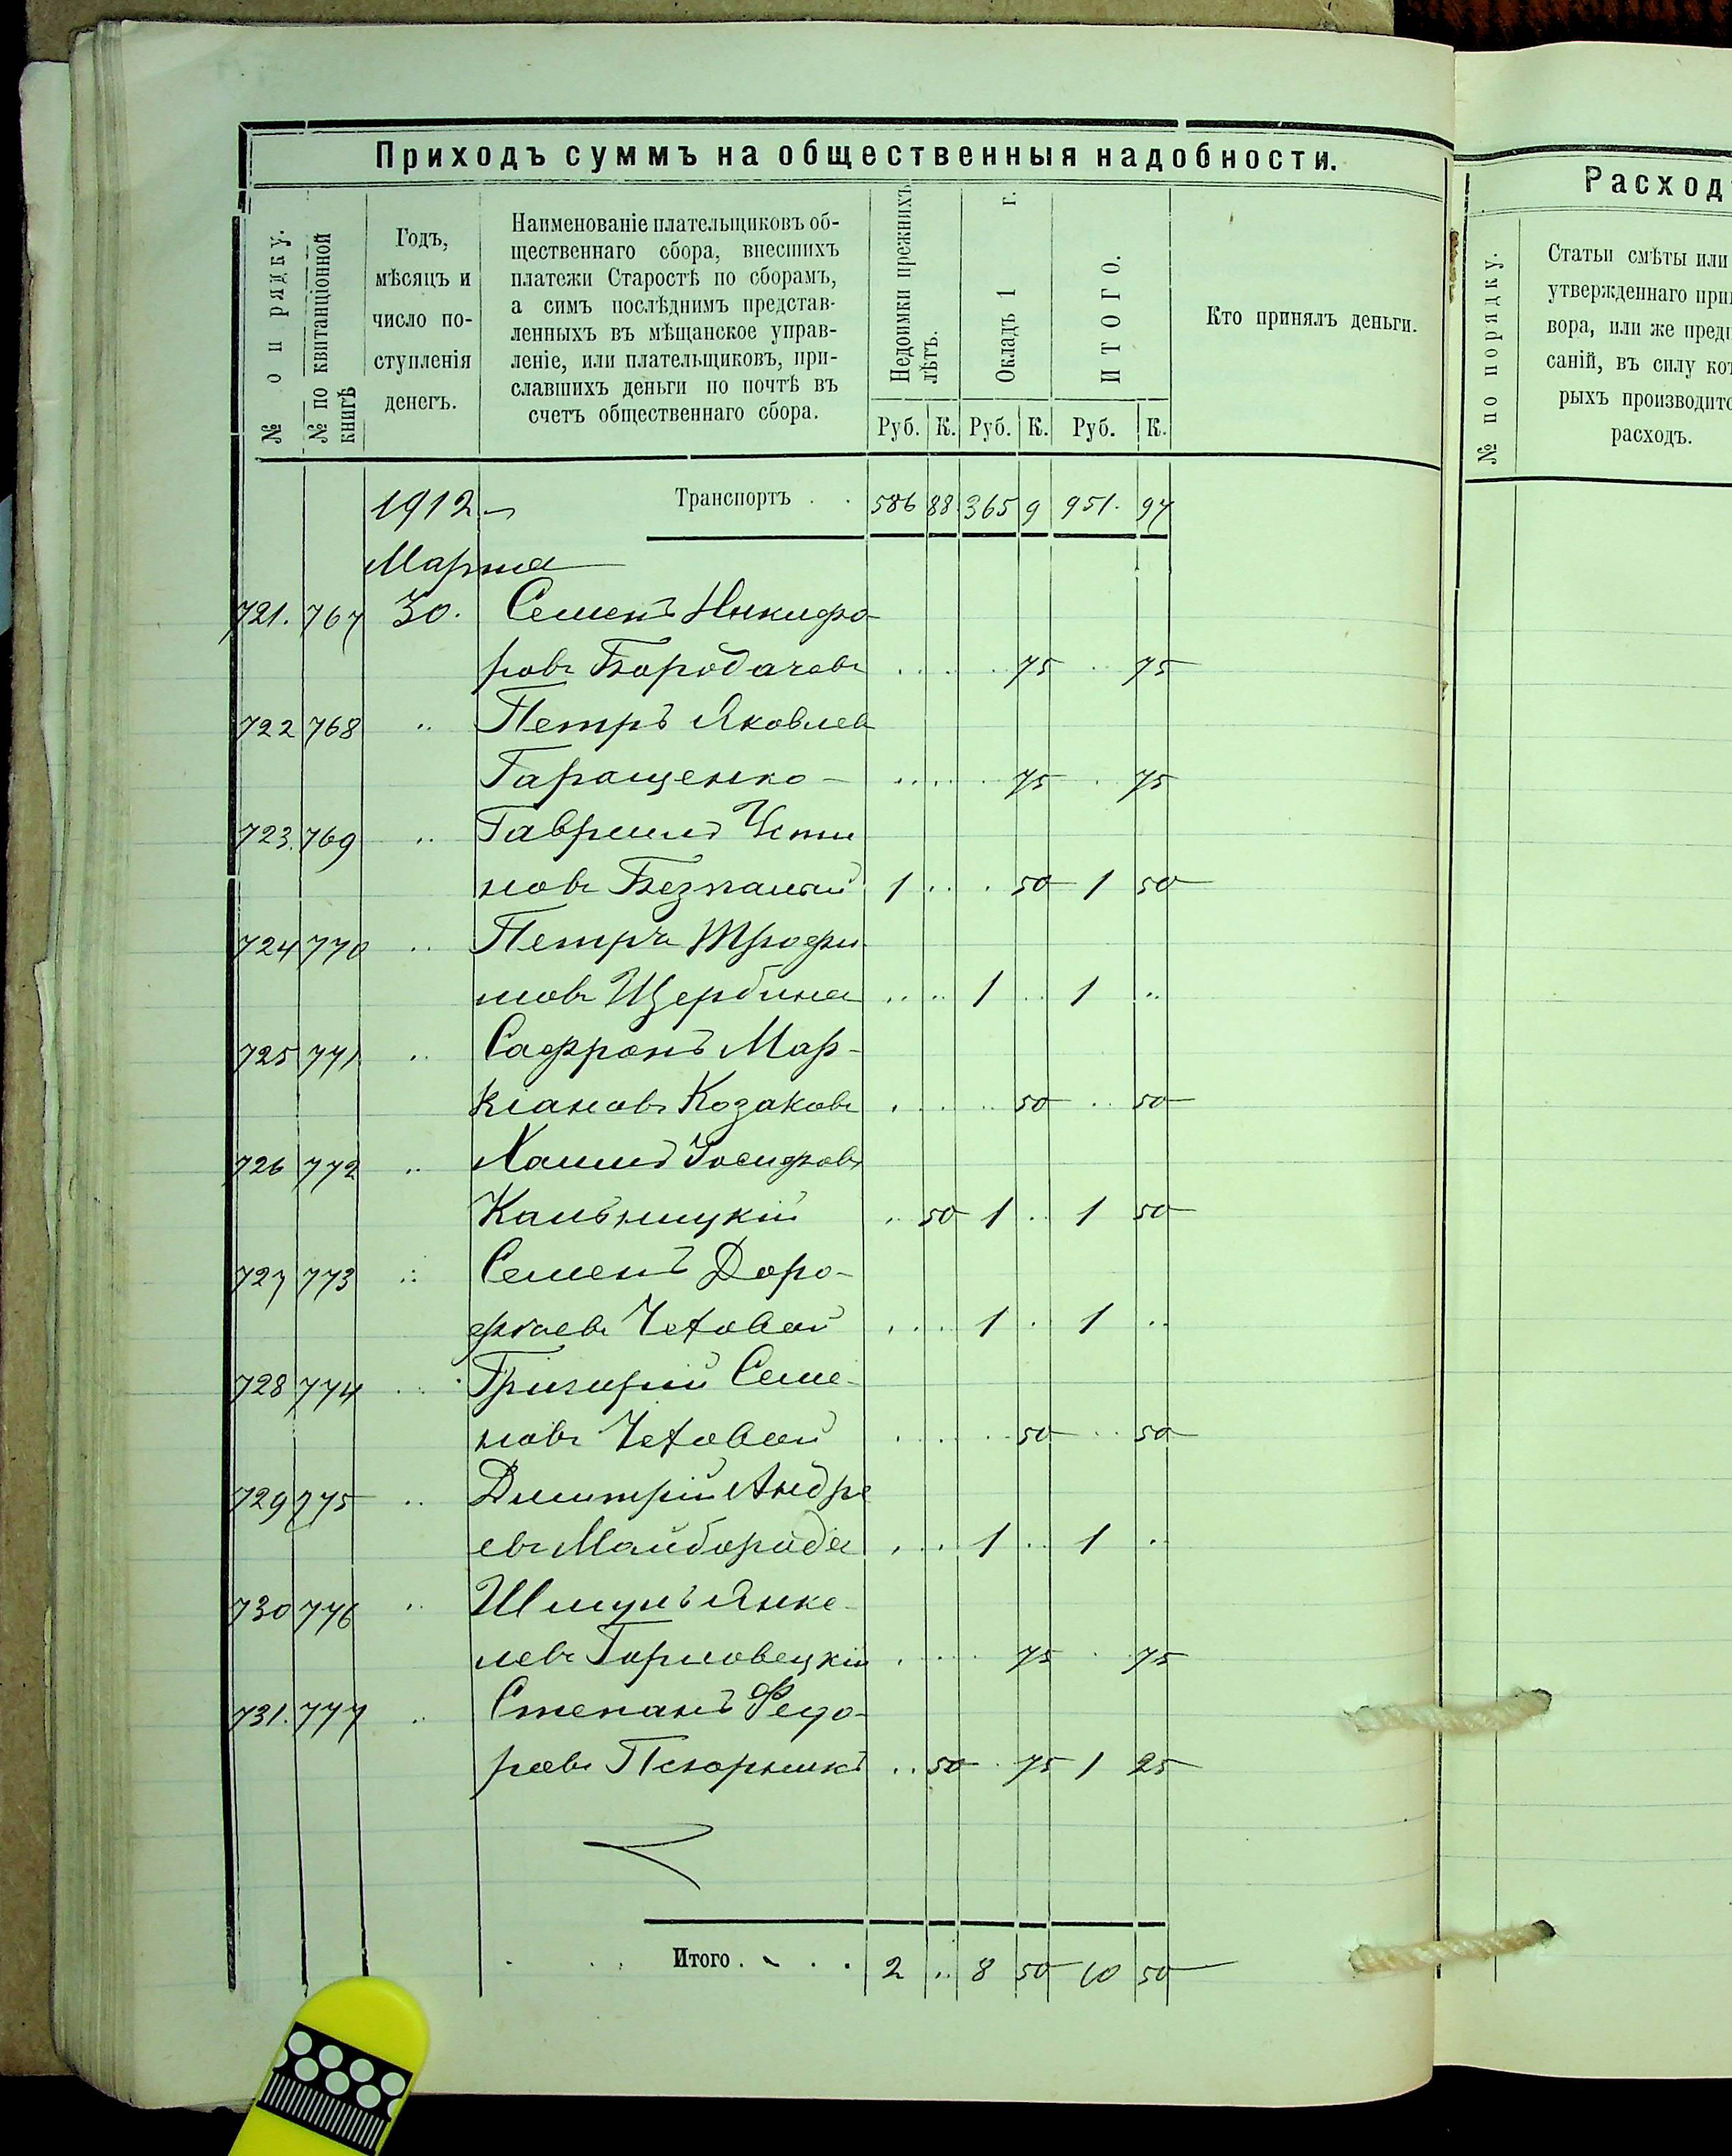 Приходъ суммъ на общественныя надобности.
№ по рядку.
№ по квитанціонной книгѣ
Годъ,
мѣсяцъ и
число по-
ступленія
денегъ.
Наименованіе плательщиковъ об-
щественнаго сбора, внесшихъ
платежи Старостѣ по сборамъ,
а симъ послѣднимъ представ-
ленныхъ въ мѣщанское управ-
леніе, или плательщиковъ, при-
славшихъ деньги по почтѣ въ
счетъ общественнаго сбора.
Недоимки прежнихъ лѣтъ.
Окладъ 1 г.
ИТОГО.
Кто принялъ деньги.
Руб. К. Руб. К. Руб. К.
1912 Транспортъ . . 586 88 365 9 951. 97
Марта
721. 767 30. Семенъ Никифо
ровъ Бородачевъ 75 75
722 768 " Петръ Яковлев
Таращенко - 75 75
723. 769 " Гавриилъ Усти
новъ Безпалый 1 50 1 50
724 770 " Петръ Трофи
мовъ Щербина 1 1 "
725 771 " Сафронъ Мар-
кіановъ Козаковъ 50 50
726 772 " Хаимъ Іосифовъ
Кальницкій " 50 1 1 50
727 773 " Семенъ Доро-
фѣевъ Чеховой 1 1 "
728 774 " Григорій Семе-
новъ Чеховой 50 50
729 775 " Дмитрій Андре
евъ Майборода 1 1 "
730 776 " Шмуль Янке-
левъ Горловецкій 75 75
731. 777 " Степанъ Федо-
ровъ Псюрникъ " 50 75 1 25
Итого . . . 2 " 8 50 10 50
Расходъ
№ по порядку.
Статьи смѣты или
утвержденнаго при
вора, или же пред
саній, въ силу кот
рыхъ производитс
расходъ.